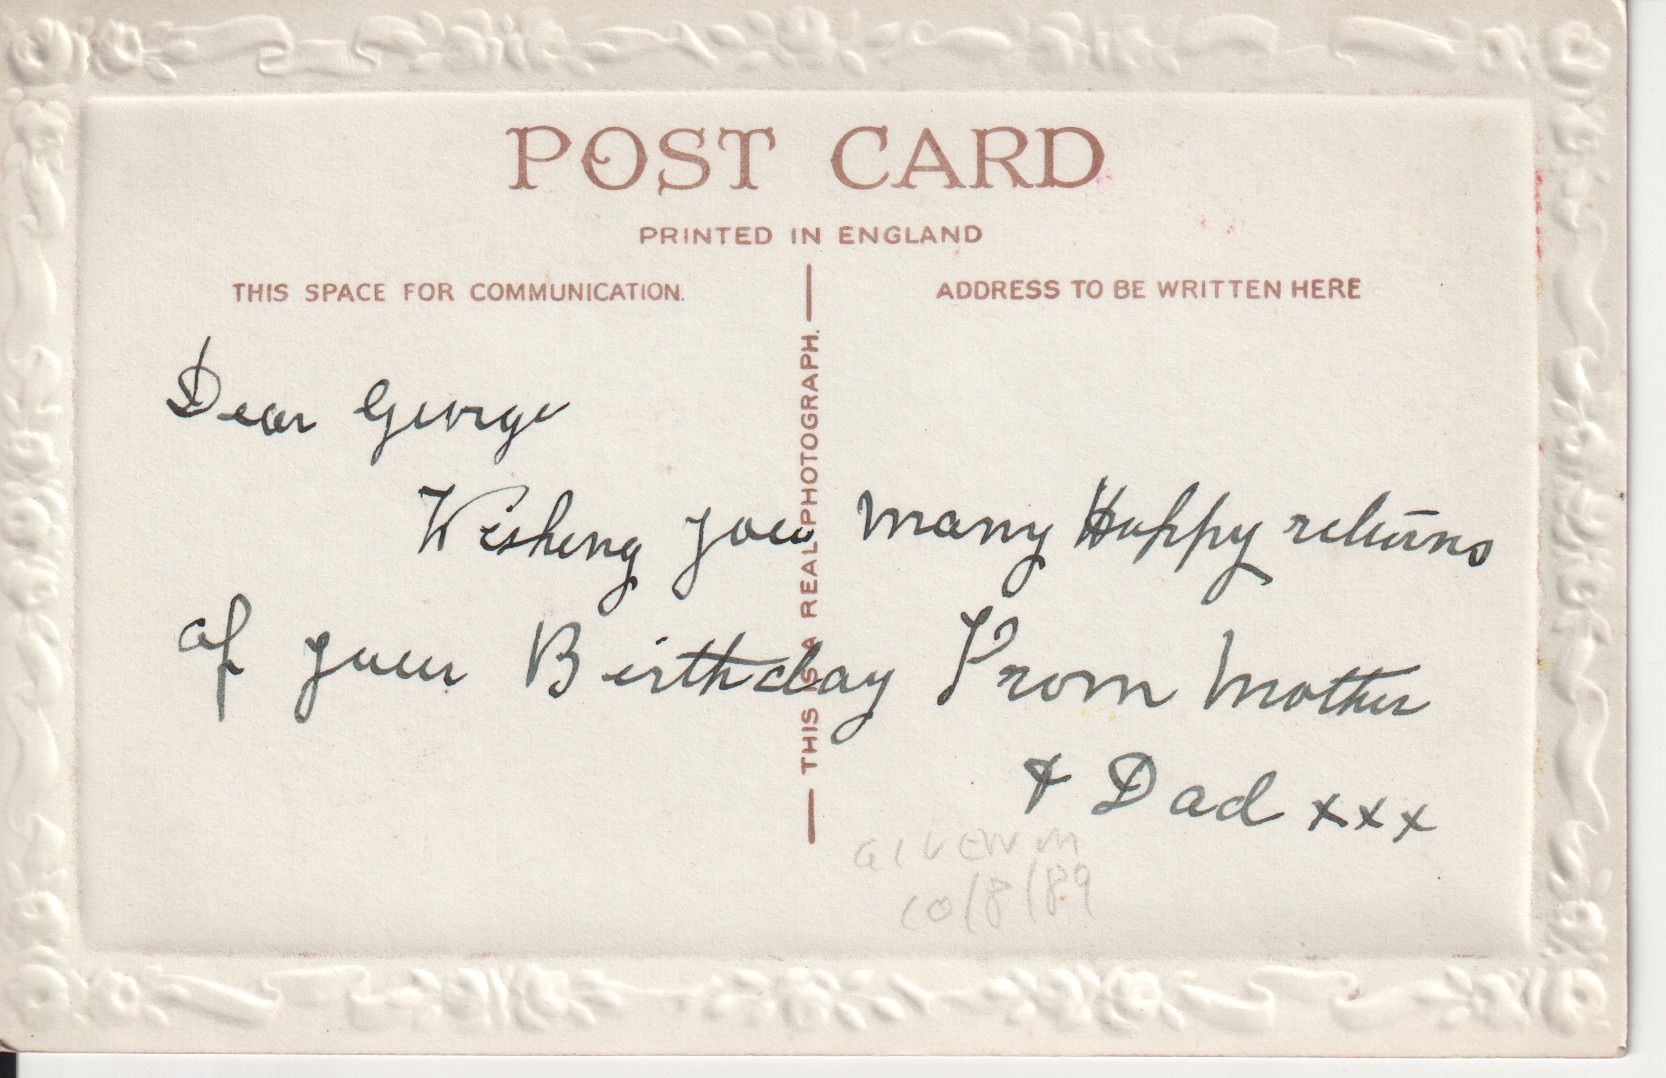 POST CARD
PRINTED IN ENGLAND
THIS SPACE FOR COMMUNICATION.
ADDRESS TO BE WRITTEN HERE
THIS IS A REAL PHOTOGRAPH.
Dear George
Wishing you many Happy returns
of your Birthday From Mother
& Dad xxx
GIVEN M
10/8/89